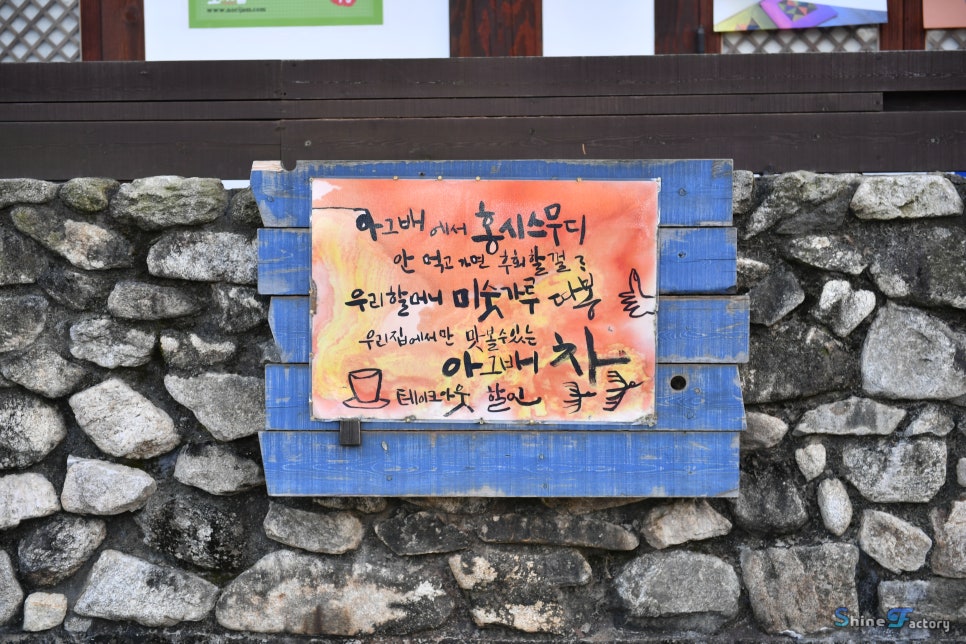 www.norijam.com
아그배에서 홍시스무디
안 먹고 가면 후회할껄?
우리할머니 미숫가루 따봉
우리집에서만 맛볼수있는
아그배 차
테이크아웃 할인
Shine Factory